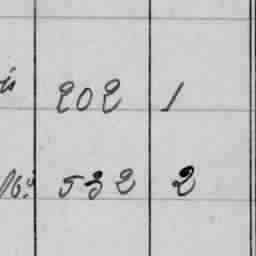 202 1
532 2